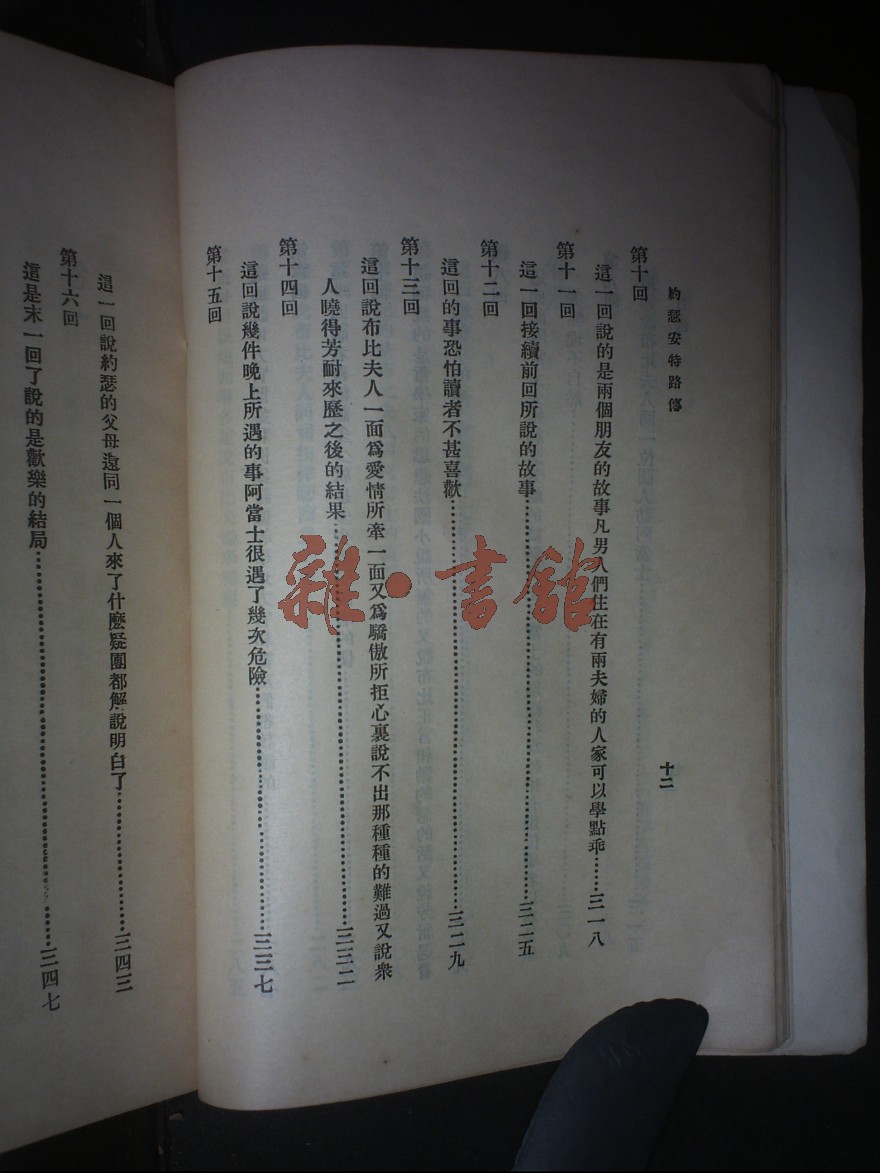 約瑟安特路傳
十二
第十回
這一回說的是兩個朋友的故事凡男人們住在有兩夫婦的人家可以學點乖……三一八
第十一回
這一回接續前回所說的故事……三二五
第十二回
這回的事恐怕讀者不甚喜歡……三二九
第十三回
這回說布比夫人一面爲愛情所牽一面又爲驕傲所拒心裏說不出那種種的難過又說衆
人曉得芳耐來歷之後的結果……三三二
第十四回
這回說幾件晚上所遇的事阿當士很遇了幾次危險……三三七
第十五回
這一回說約瑟的父母還同一個人來了什麽疑團都解說明白了……三四三
第十六回
這是末一回了說的是歡樂的結局……三四七
雜·書館